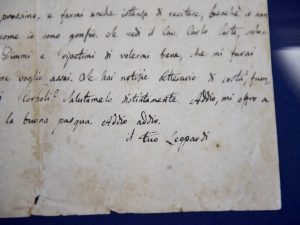 prossimo, e farmi anche istanza di recitare, benchè io non
come io sono gonfio. Se vedi il Cav. Carlo
Dimmi e ripetimi di volermi bene, che mi farai
ne voglio assai. Se hai notizie letterarie di costà
Salutamelo distintamente. Addio, mi
la buona pasqua. Addio addio.
il tuo Leopardi